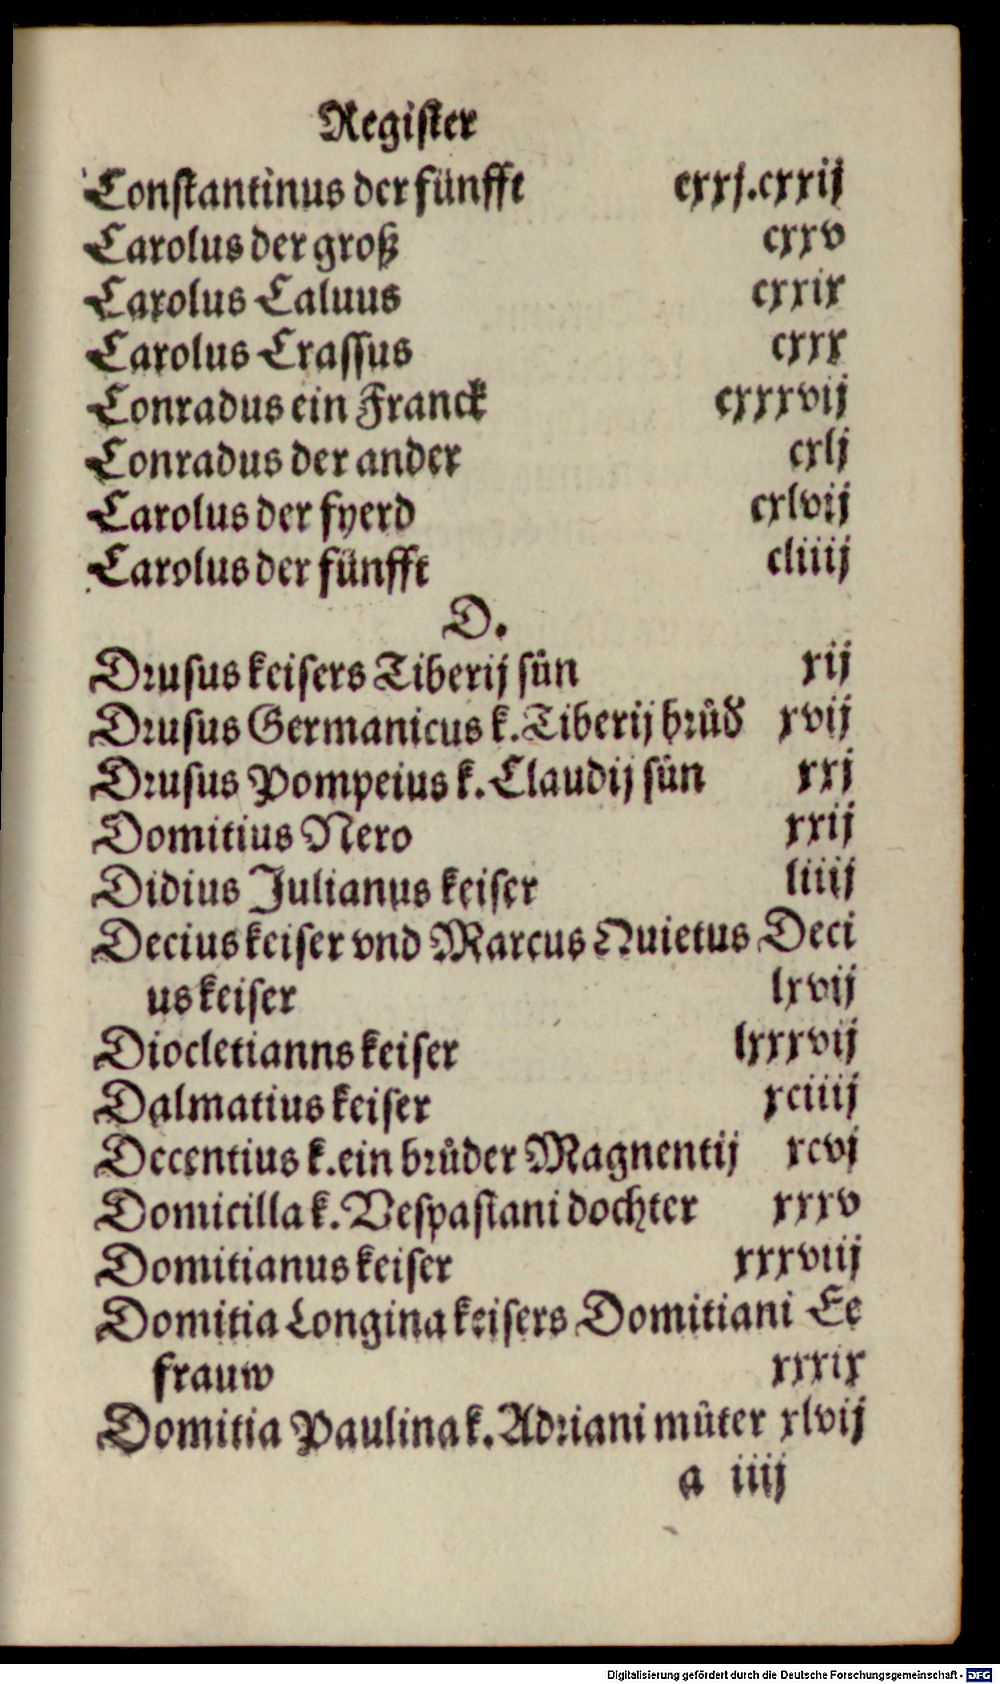 Register
Constantinus der fünfft cxxj.cxxij
Carolus der groß cxxv
Carolus Caluus cxxix
Carolus Crassus cxxx
Conradus ein Franck cxxxvij
Conradus der ander cxlj
Carolus der fyerd cxlvij
Carolus der fünfft cliiij
D.
Drusus keisers Tiberij sün xij
Drusus Germanicus k. Tiberij brůd xvij
Drusus Pompeius k. Claudij sün xxj
Domitius Nero xxij
Didius Julianus keiser liiij
Decius keiser vnd Marcus Quietus Deci
us keiser lxvij
Diocletianns keiser lxxxvij
Dalmatius keiser xciiij
Decentius k. ein brůder Magnentij xcvj
Domicilla k. Vespasiani dochter xxxv
Domitianus keiser xxxviij
Domitia Longina keisers Domitiani Ee
frauw xxxix
Domitia Paulina k. Adriani můter xlvij
a iiij
Digitalisierung gefördert durch die Deutsche Forschungsgemeinschaft - DFG